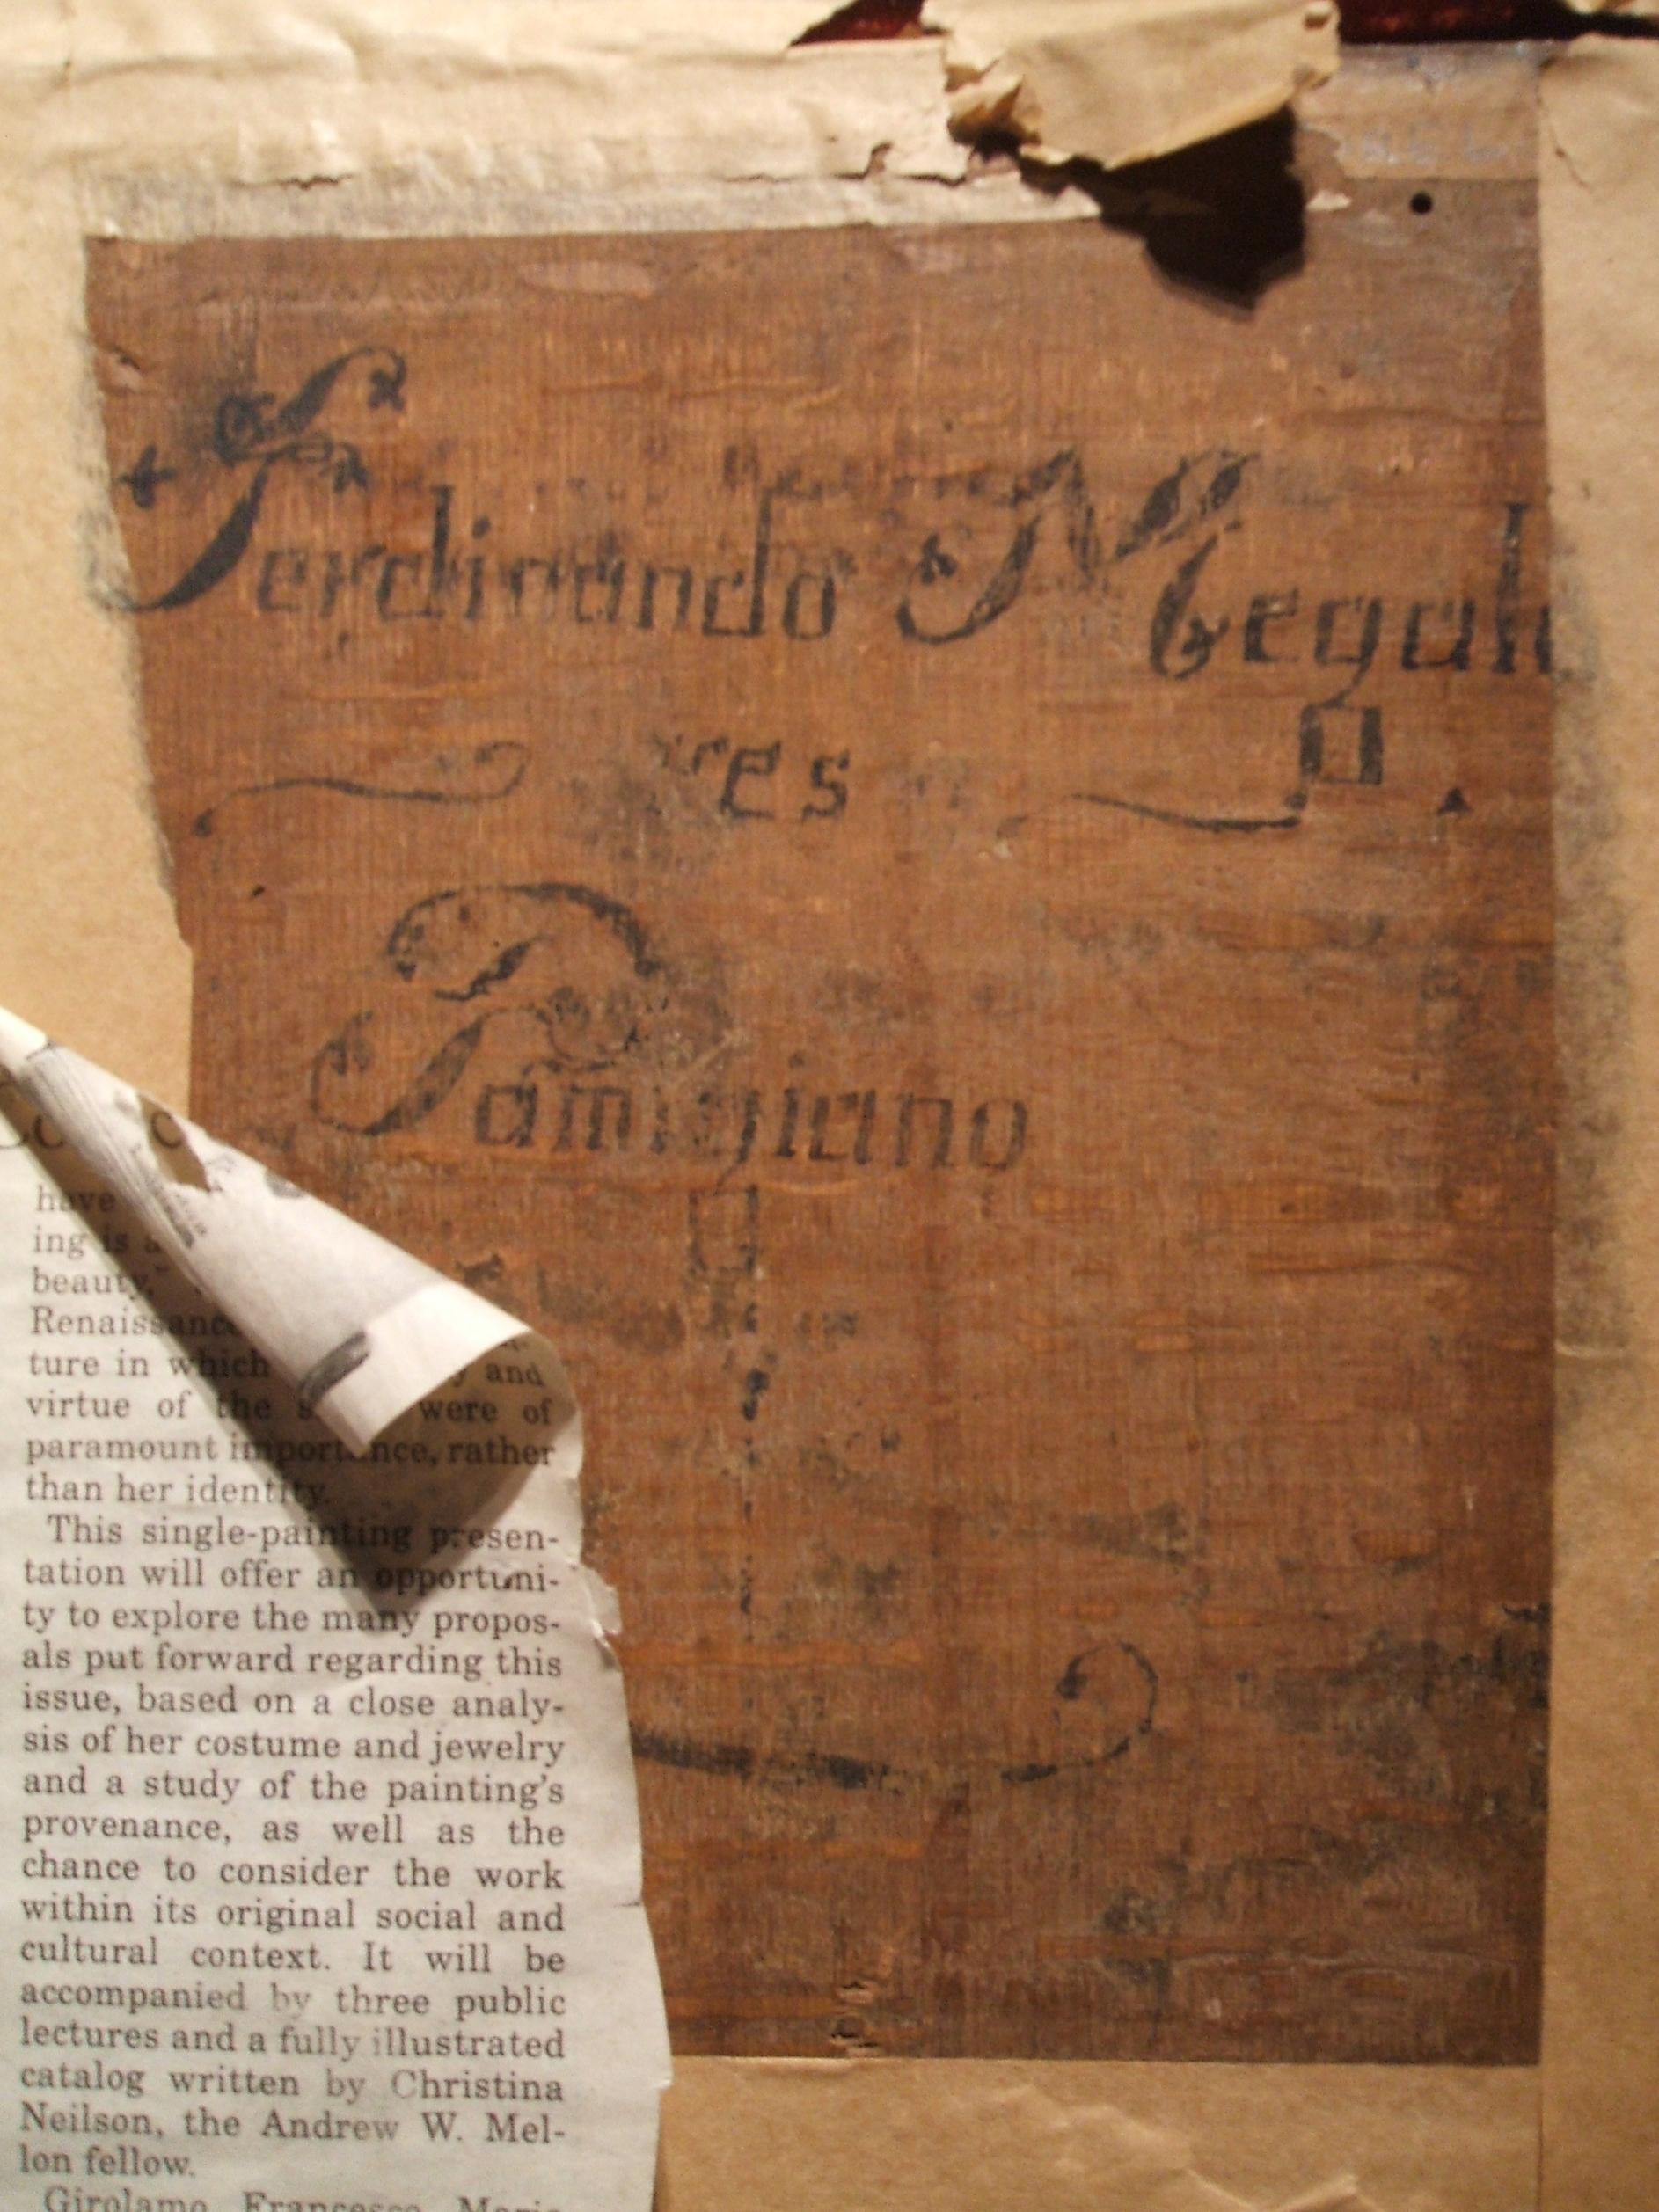 Ferdinando Megal
res
Parmigiano
have
ing is a
beauty,"
Renaissance
ture in which y and
virtue of the s were of
paramount importance, rather
than her identity.
This single-painting presen-
tation will offer an opportuni-
ty to explore the many propos-
als put forward regarding this
issue, based on a close analy-
sis of her costume and jewelry
and a study of the painting's
provenance, as well as the
chance to consider the work
within its original social and
cultural context. It will be
accompanied by three public
lectures and a fully illustrated
catalog written by Christina
Neilson, the Andrew W. Mel-
lon fellow.
Girolamo Francesco Maria